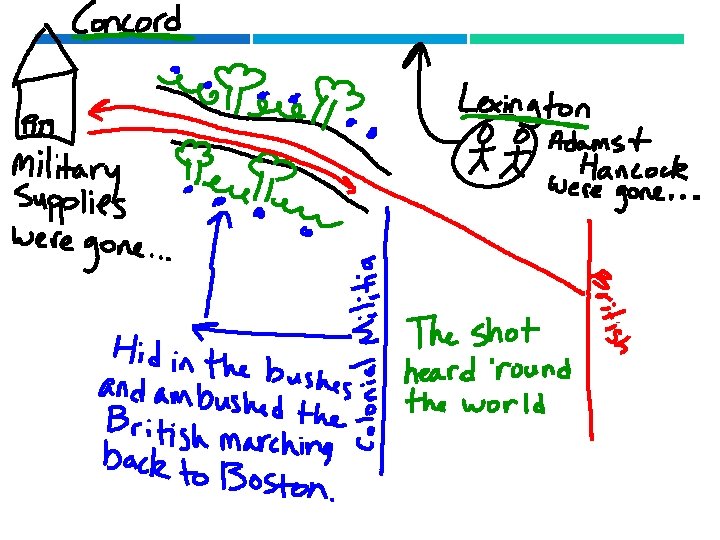 Concord
Lexington
Adams +
Hancock
were gone...
Military
Supplies
were gone...
British
Colonial Militia
The shot
heard 'round
the world
Hid in the bushes
and ambushed the
British marching
back to Boston.